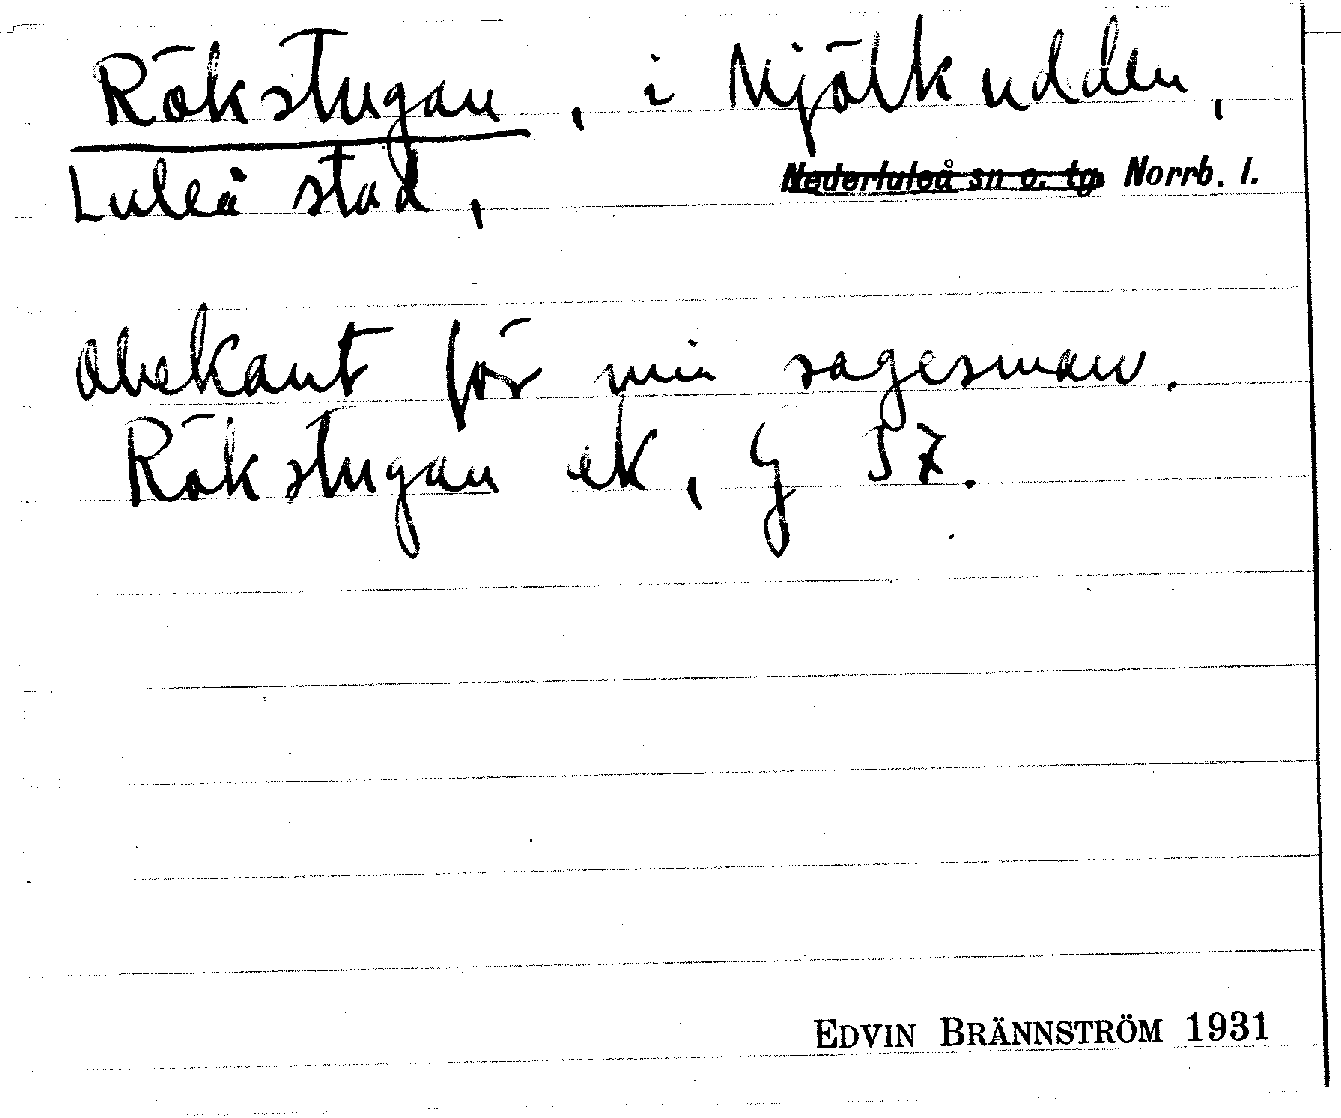 Rökstugan, i Mjölkudden,
Luleå stad, Nederluleå sn o. tg Norrb. l.
obekant för min sagesman.
Rökstugan ek, G 57.
EDVIN BRÄNNSTRÖM 1931